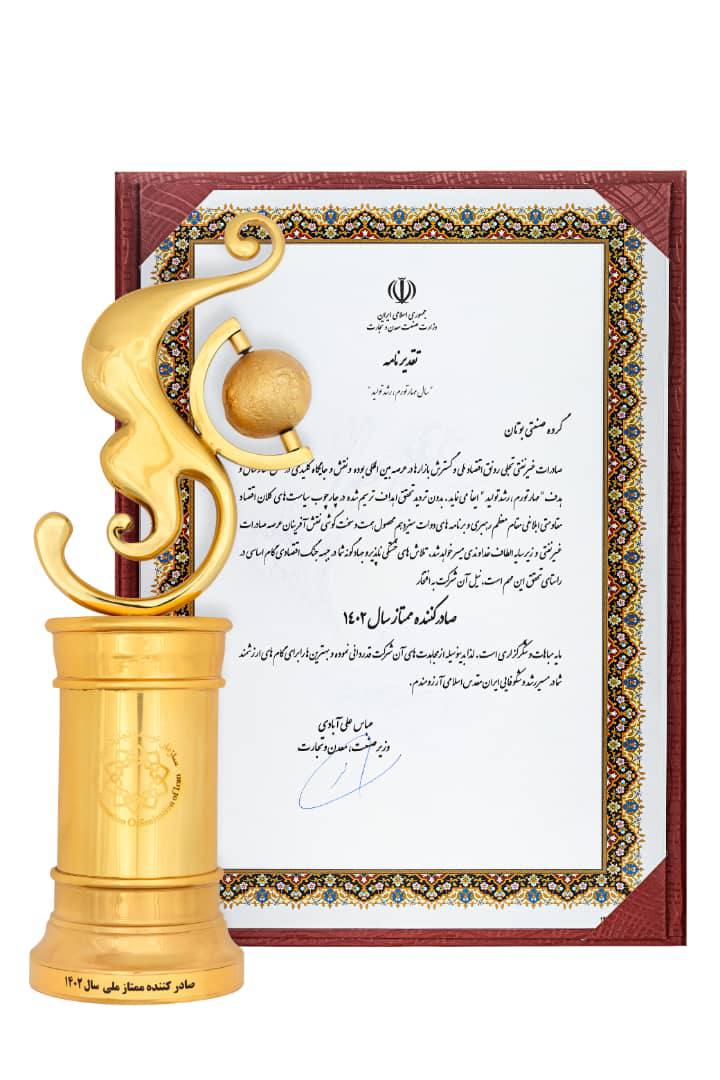 جمهوری اسلامی ایران
وزارت صنعت معدن و تجارت
تقدیرنامه
"سال مهار تورم، رشد تولید"
گروه صنعتی بوتان
صادرات غیرنفتی تجلی رونق اقتصاد ملی و گسترش بازارها در عرصه بین المللی بوده و نقش و جایگاه کلیدی در
هدف "مهار تورم، رشد تولید" ایفا می نماید، بدون تردید تحقق اهداف ترسیم شده در چارچوب سیاست های کلان اقتصاد
مقاومتی ابلاغی مقام معظم رهبری و برنامه های دولت سیزدهم محصول همت و سخت کوشی نقش آفرینان عرصه صادرات
غیرنفتی و زیر سایه الطاف خداوندی میسر خواهد شد. تلاش های خستگی ناپذیر و جهادگونه شما در جبهه جنگ اقتصادی گام اساسی در
راستای تحقق این مهم است. نیل آن شرکت به افتخار
صادرکننده ممتاز سال ۱۴۰۲
مایه مباهات و شکرگزاری است. لذا بدینوسیله از مجاهدت های آن شرکت قدردانی نموده و بهترین ها را برای گام های ارزشمند
شما در مسیر رشد و شکوفایی ایران مقدس اسلامی آرزومندم.
عباس علی آبادی
وزیر صنعت، معدن و تجارت
Organization of Iran
صادر کننده ممتاز ملی سال ۱۴۰۲